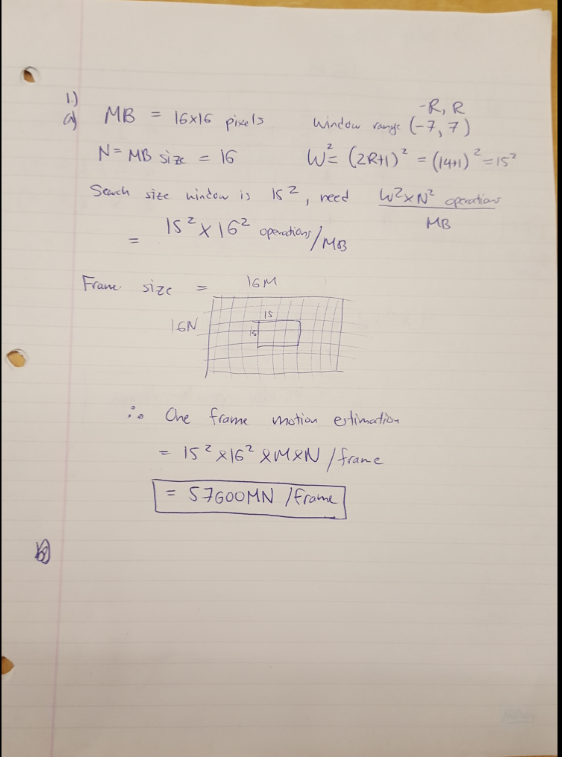 1)
a) MB = 16x16 pixels
-R, R
Window range (-7, 7)
N = MB size = 16
W² = (2R+1)² = (14+1)² = 15²
Search size window is 15², need W²xN² operations / MB
= 15² x 16² operations/MB
Frame size =
16M
16N
15
∴ One frame motion estimation
= 15² x 16² x M x N /frame
= 57600MN /frame